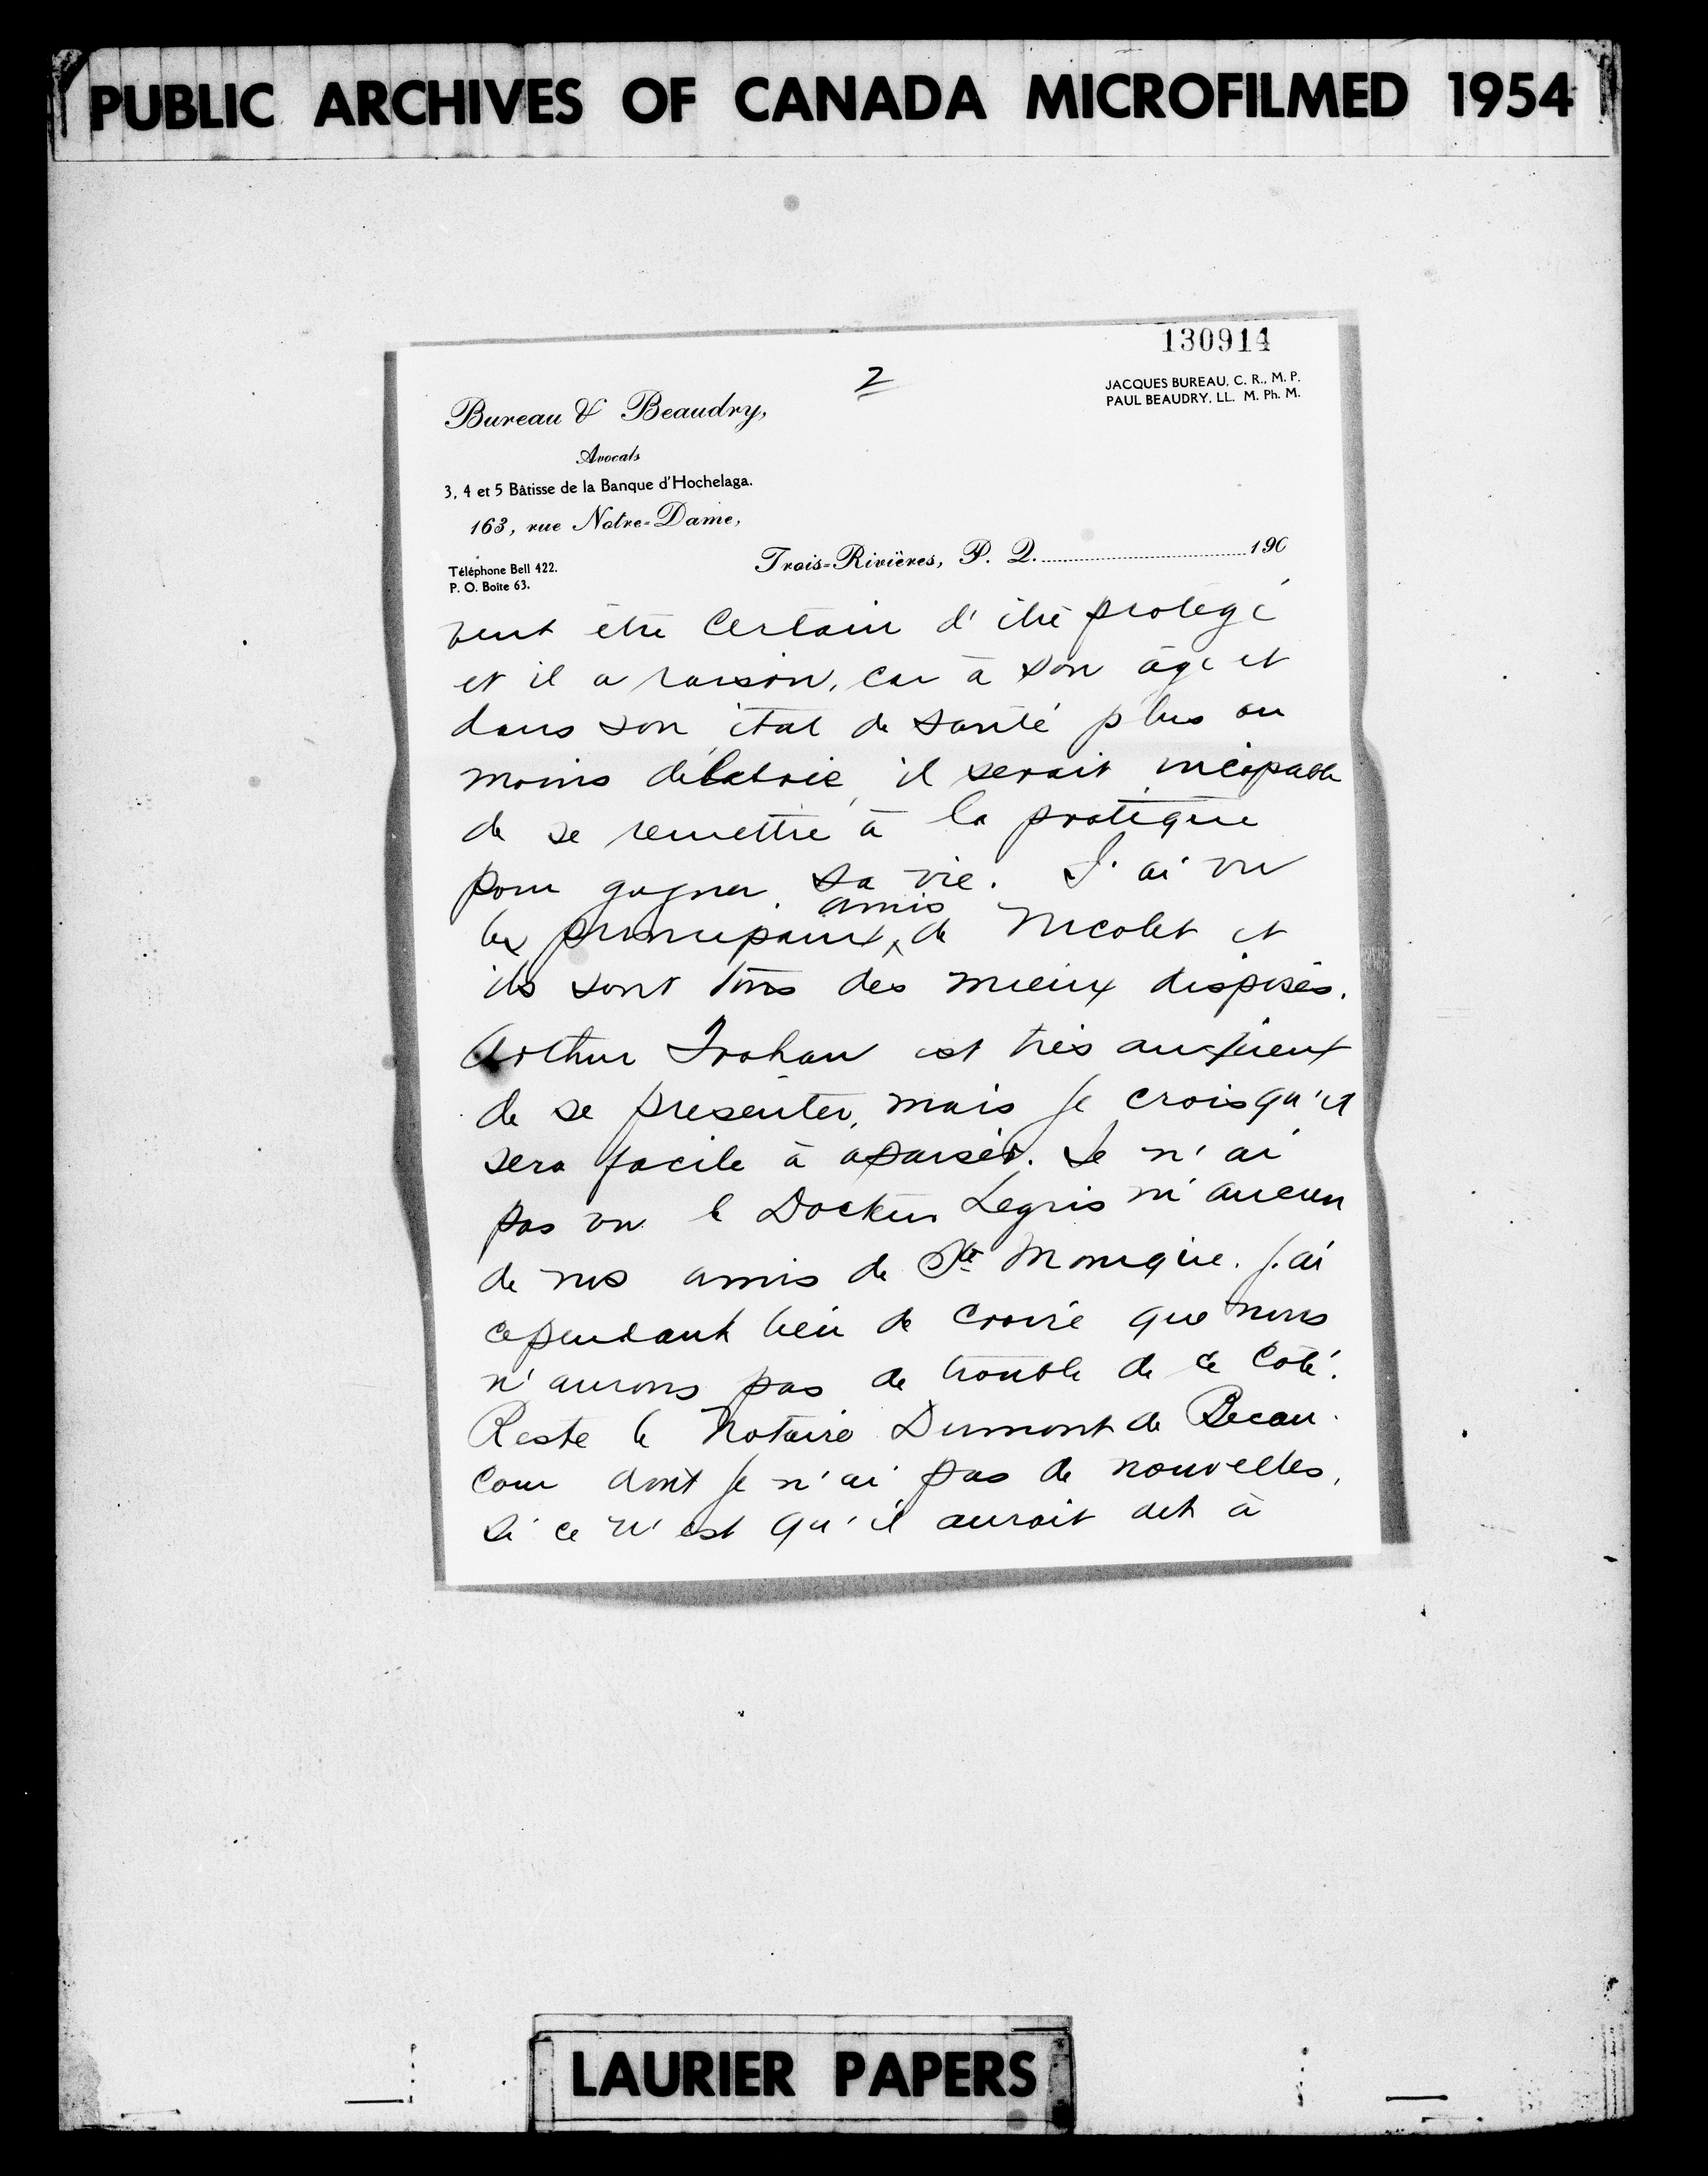 PUBLIC ARCHIVES OF CANADA MICROFILMED 1954
130914
2
JACQUES BUREAU, C. R., M. P.
PAUL BEAUDRY, LL. M. Ph. M.
Bureau & Beaudry,
Avocats
3, 4 et 5 Bâtisse de la Banque d'Hochelaga.
163, rue Notre-Dame,
Téléphone Bell 422.
P. O. Boite 63.
Trois-Rivières, P. Q. 190
veut être certain d'être protégé
et il a raison, car à son âge et
dans son état de santé plus ou
moins délabrée, il serait incapable
de se remettre à la pratique
pour gagner sa vie. J'ai vu
les principaux amis de Nicolet et
ils sont tous des mieux disposés.
Arthur Trahan est très anxieux
de se présenter, mais je crois qu'il
sera facile à apaiser. Je n'ai
pas vu le Docteur Legris ni aucun
de nos amis de Ste Monique. J'ai
cependant lieu de croire que nous
n'aurons pas de trouble de ce côté.
Reste le Notaire Dumont de Bécan-
cour dont je n'ai pas de nouvelles,
si ce n'est qu'il aurait dit à
LAURIER PAPERS